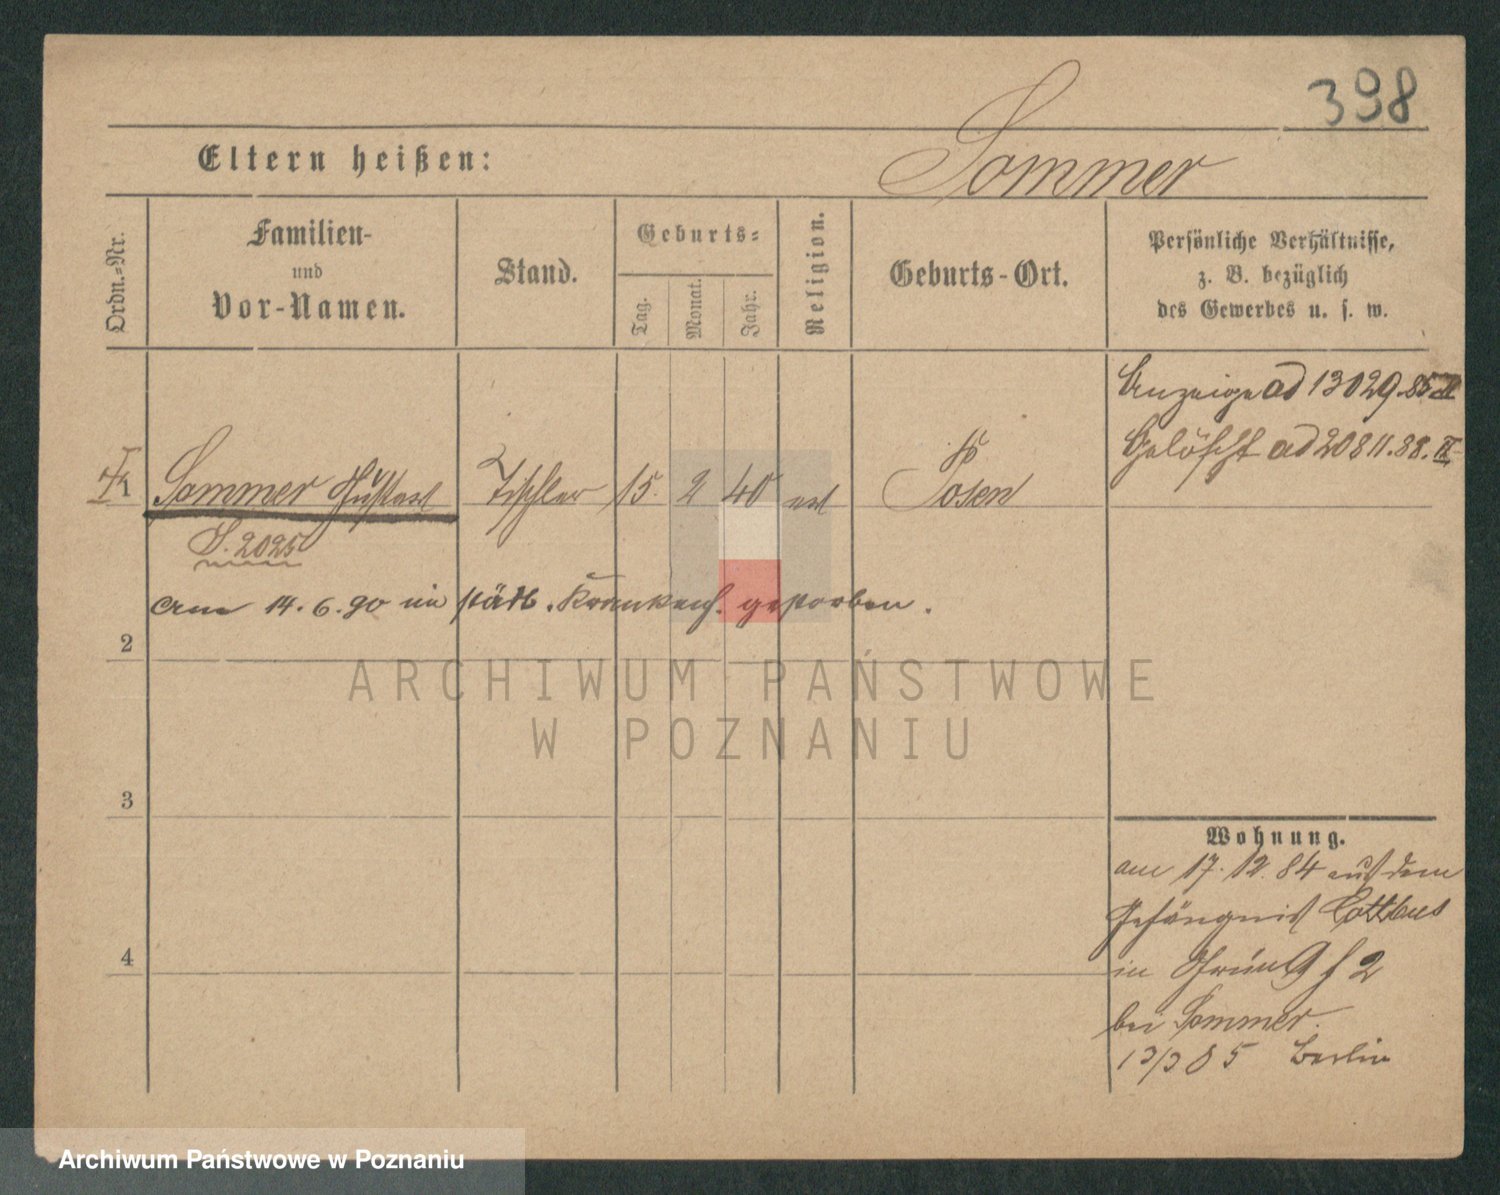 398
Sommer
Eltern heißen:
Ordn.=Nr.
Familien-
und
Vor-Namen.
Stand.
Geburts=
Tag.
Monat.
Jahr.
Religion.
Geburts-Ort.
Persönliche Verhältnisse,
z. B. bezüglich
des Gewerbes u. s. w.
Anzeige ad 13029.85 II
Gelöscht ad 20811.88. II
Sommer Gustav
Tischler
15. 2 40
ev
Posen
S. 2025
am 14.6.90 im städt. Krankenh. gestorben.
2
3
4
Wohnung.
am 17.12.84 aus dem
Gefängnis Cottbus
in
bei Sommer.
13/3 85 Berlin
ARCHIWUM PAŃSTWOWE
W POZNANIU
Archiwum Państwowe w Poznaniu